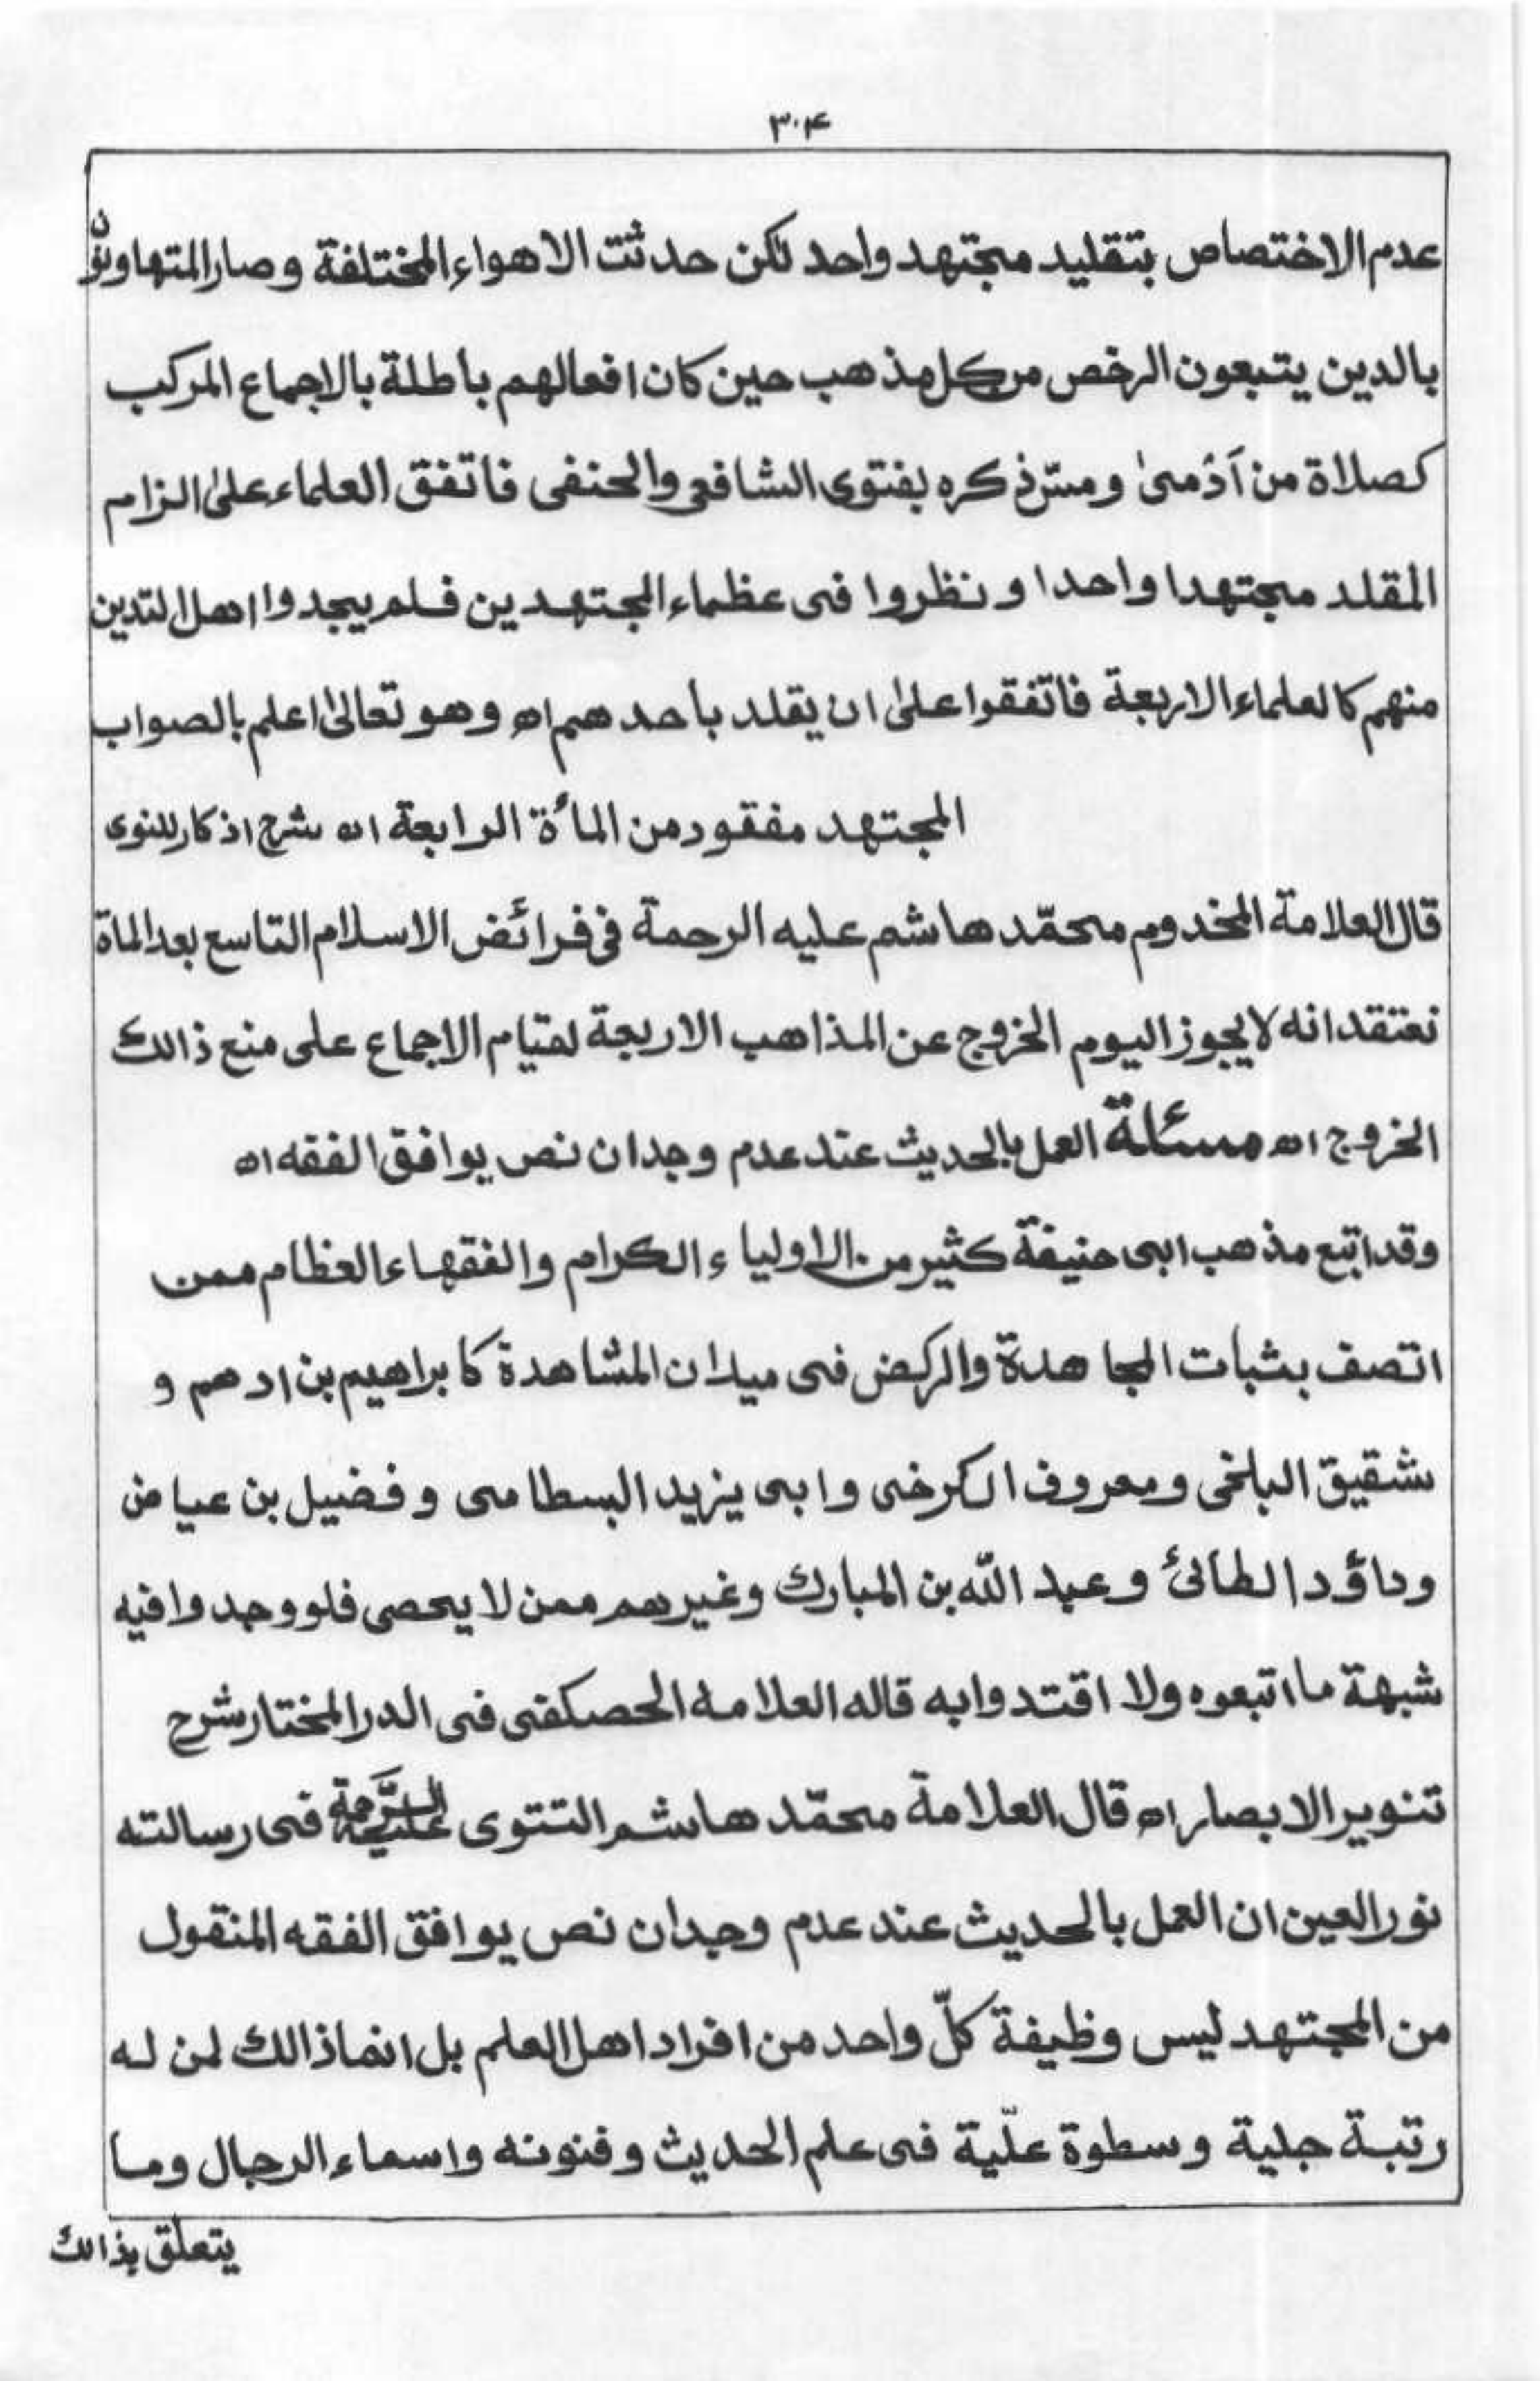 ٣٠۴
عدم الاختصاص بتقليد مجتهد واحد لكن حدثت الاهواء المختلفة وصار المتهاونون
بالدين يتبعون الرخص من كل مذهب حين كان افعالهم باطلة بالاجماع المركب
كصلاة من آذمىٰ ومسّ ذكره بفتوى الشافعى والحنفى فاتفق العلماء علىٰ الزام
المقلد مجتهدا واحدا ونظروا فى عظماء المجتهدين فلم يجدوا اهل التدين
منهم كالعلماء الاربعة فاتفقوا علىٰ ان يقلد باحدهم اھ وهو تعالىٰ اعلم بالصواب
المجتهد مفقود من المأة الرابعة اھ شرح اذكار للنوى
قال العلامة المخدوم محمّد هاشم عليه الرحمة فى فرائض الاسلام التاسع بعد الماة
نعتقد انه لايجوز اليوم الخروج عن المذاهب الاربعة لقيام الاجماع على منع ذالك
الخروج اھ مسئلة العمل بالحديث عند عدم وجدان نص يوافق الفقه اھ
وقد اتبع مذهب ابى حنيفة كثير من الاولياء الكرام والفقهاء العظام ممن
اتصف بثبات المجاهدة والركض فى ميدان المشاهدة كابراهيم بن ادهم و
شقيق البلخى ومعروف الكرخى وابى يزيد البسطامى وفضيل بن عياض
وداؤد الطائئ وعبد اللّه بن المبارك وغيرهم ممن لا يحصى فلو وجدوا فيه
شبهة ما اتبعوه ولا اقتدوا به قاله العلامه الحصكفى فى الدر المختار شرح
تنوير الابصار اھ قال العلامة محمّد هاشم التتوى عليه الرَّحمة فى رسالته
نور العين ان العمل بالحديث عند عدم وجدان نص يوافق الفقه المنقول
من المجتهد ليس وظيفة كلّ واحد من افراد اهل العلم بل انما ذالك لمن له
رتبة جلية وسطوة علّية فى علم الحديث وفنونه واسماء الرجال وما
يتعلق بذالك